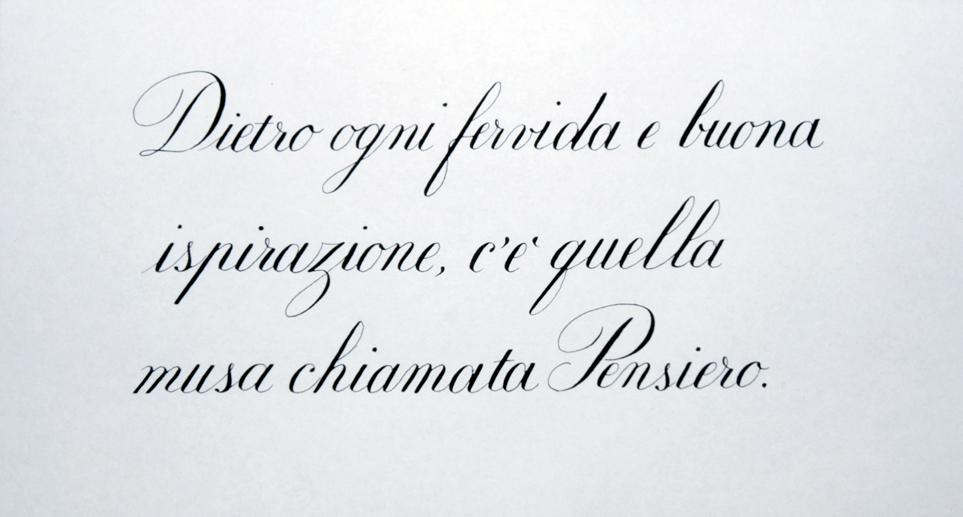 Dietro ogni fervida e buona
ispirazione, c'è quella
musa chiamata Pensiero.